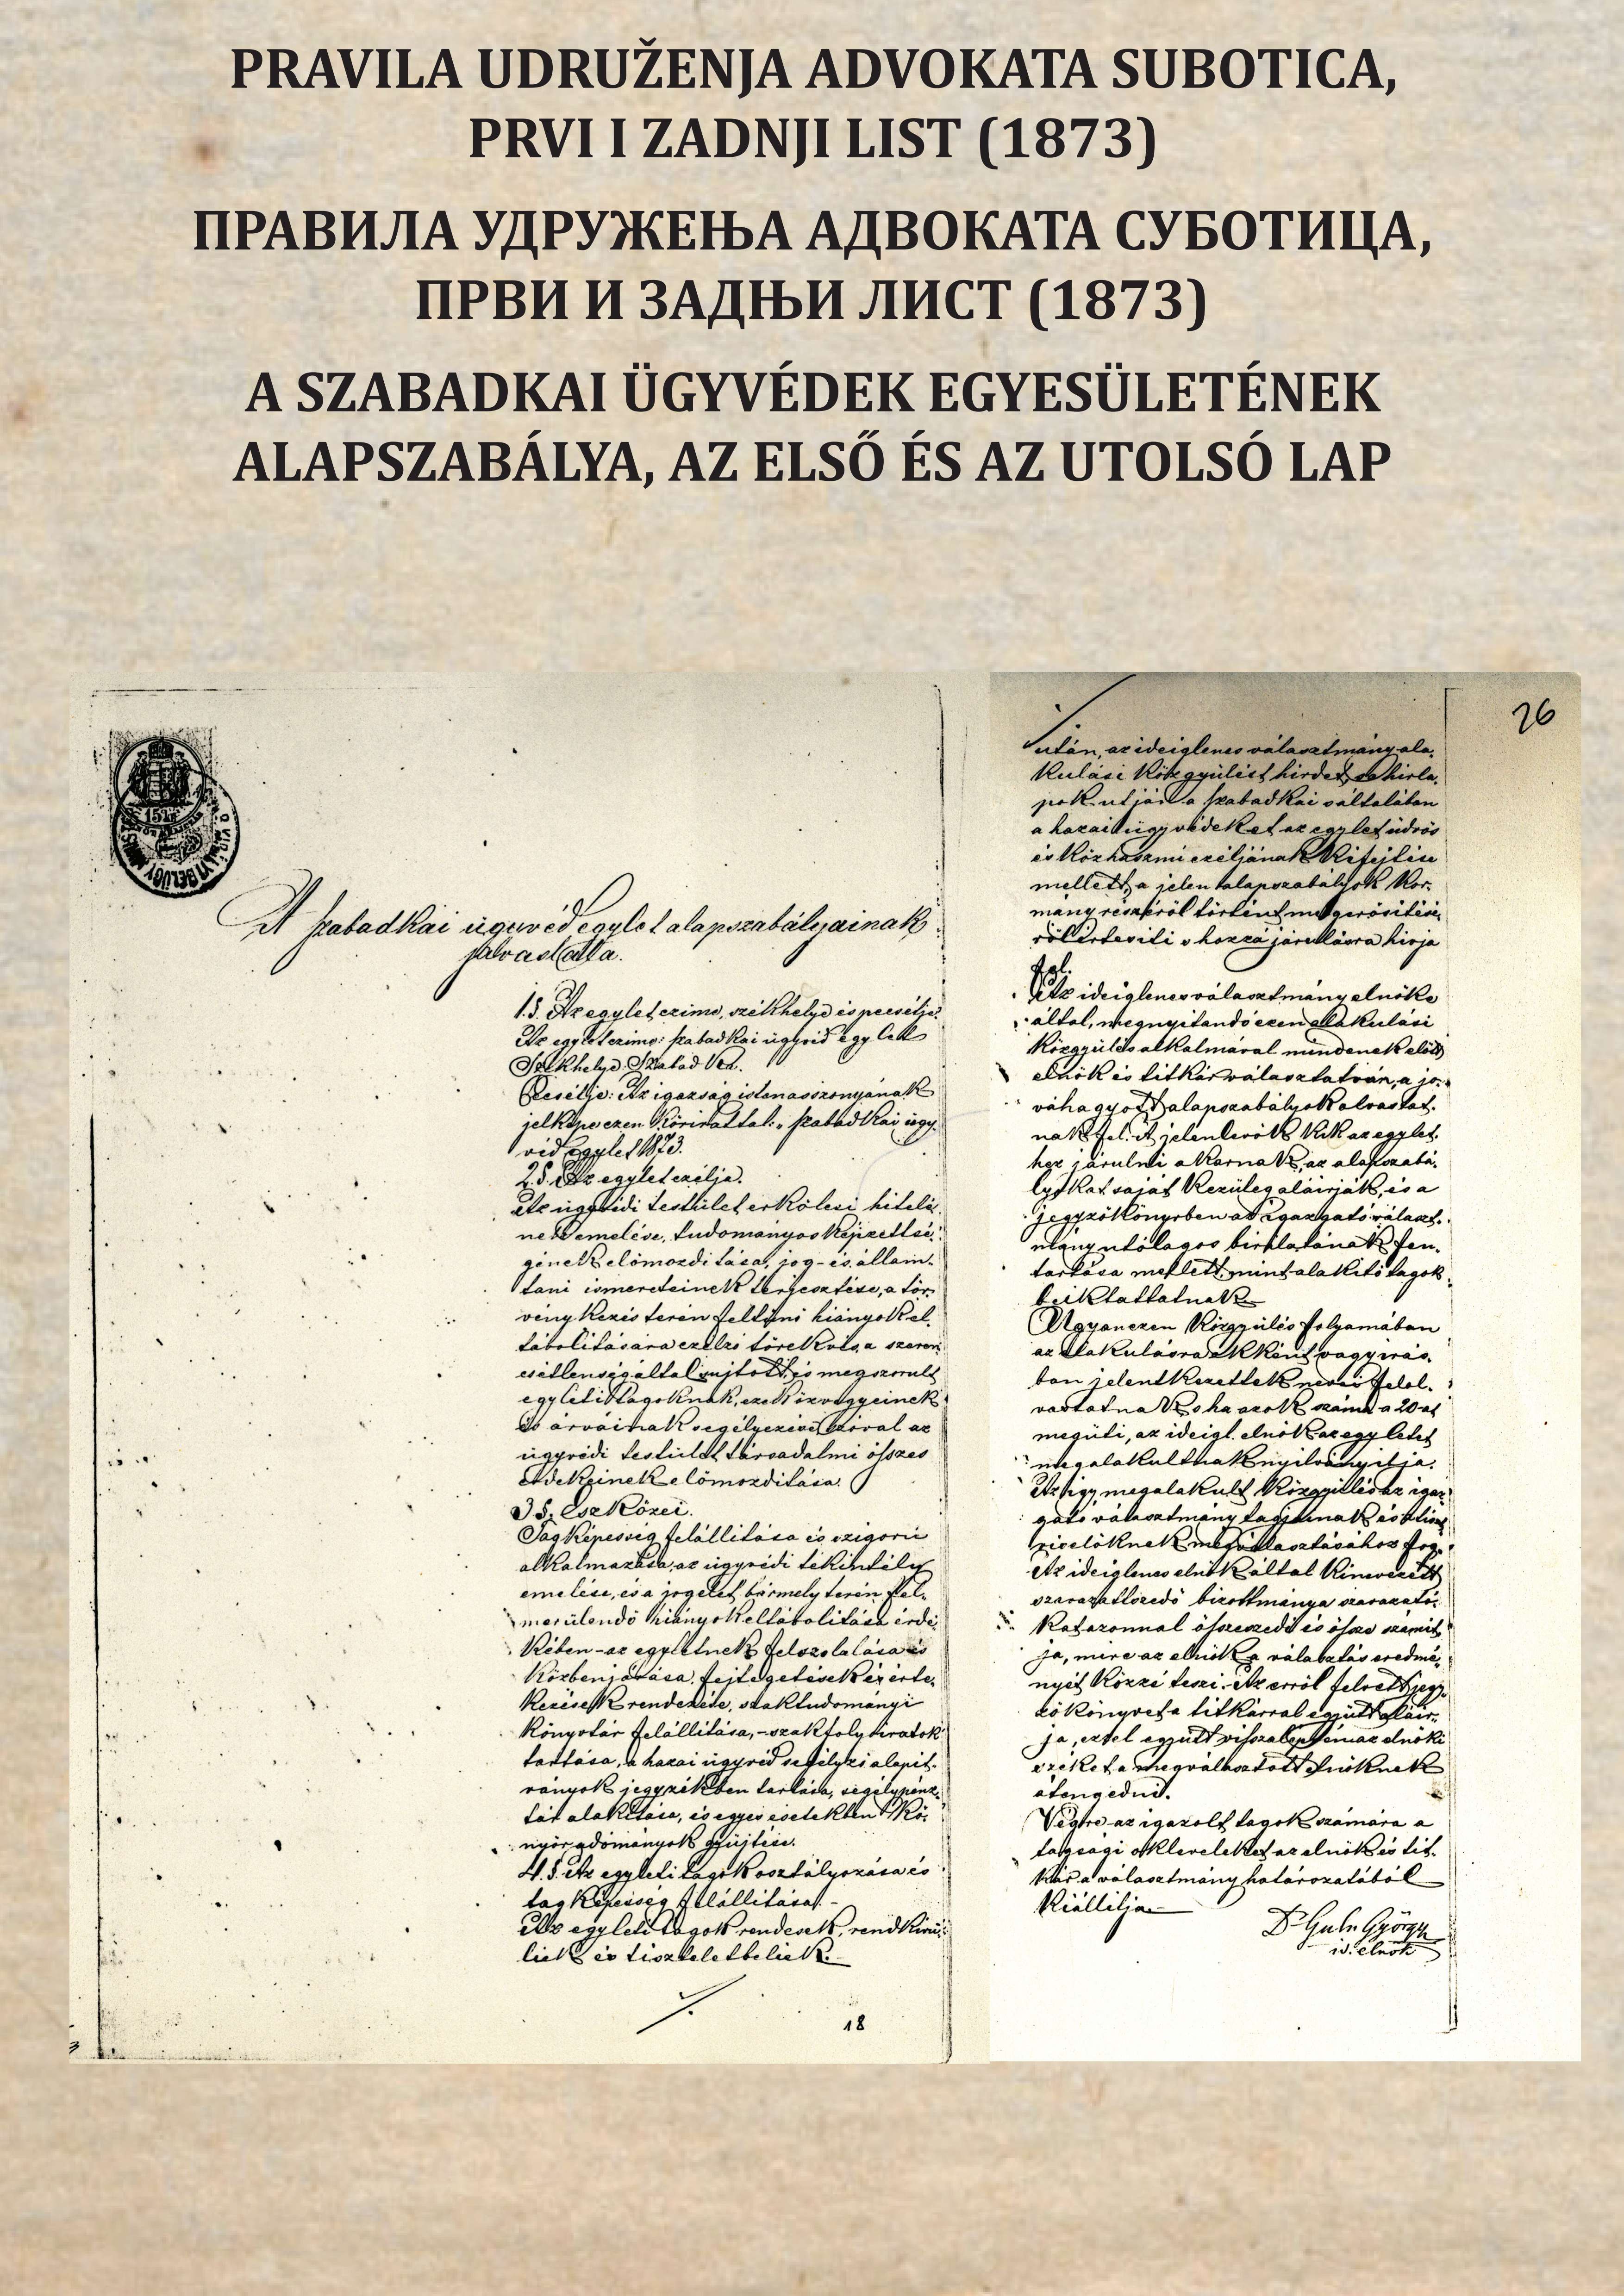 PRAVILA UDRUŽENJA ADVOKATA SUBOTICA,
PRVI I ZADNJI LIST (1873)
ПРАВИЛА УДРУЖЕЊА АДВОКАТА СУБОТИЦА,
ПРВИ И ЗАДЊИ ЛИСТ (1873)
A SZABADKAI ÜGYVÉDEK EGYESÜLETÉNEK
ALAPSZABÁLYA, AZ ELSŐ ÉS AZ UTOLSÓ LAP
A szabadkai ügyvéd egylet alapszabályainak
1.§. Az egylet czime, székhelye és pecsétje.
Az egylet czime: szabadkai ügyvéd egylet
Székhelye: Szabadka.
Pecsétje: Az igazság istenasszonyának
jelképe ezen körirattal: „szabadkai ügy-
véd egylet 1873.
2.§. Az egylet czélja.
Az ügyvédi testület erkölcsi hitelé-
nek emelése, tudományos képzettsé-
gének előmozditása, jog- és állam-
tani ismereteinek terjesztése, a tör-
vénykezés terén feltünő hiányok el-
távolitására czélzó törekvés, a szeren-
csétlenség által sujtott, és megszorult
egyleti tagoknak, ezek özvegyeinek
és árváinak segélyezése, szóval az
ügyvédi testület társadalmi összes
érdekeinek előmozditása.
3§. Eszközei.
Tagképesség felállitása és szigorú
alkalmazása, az ügyvédi tekintély
emelése, és a jogélet bármely terén fel-
merülendő hiányok eltávolitása érde-
kében – az egyletnek felszolalása és
közbenjárása, fejtegetések és érte-
kezések rendezése, szaktudományi
könyvtár felállitása, – szakfolyóiratok
tartása, a hazai ügyvéd segélyzó alapit-
ványok jegyzékben tartása, segélypénz-
tár alakitása, és egyes esetekben kö-
nyöradományok gyüjtése.
4.§. Az egyleti tagok osztályozása és
tagképesség felállitása. –
Az egyleti tagok rendesek, rendkivü-
liek és tiszteletbeliek. –
18
26
után, az ideiglenes választmány ala-
kulási közgyülést hirdet, a hirla-
pok utján a szabadkai s általában
a hazai ügyvédeket az egylet üdvös
és közhasznú czéljának kifejtése
mellett, a jelen alapszabályok kor-
mány részéröl történt megerösitésé-
röl értesiti s hozzájárulásra hivja
fel.
Az ideiglenes választmány elnöke
által, megnyitandó ezen alakulási
közgyülés alkalmával mindenek előtt
elnök és titkár választatván, a jo-
váhagyott alapszabályok olvastat-
nak fel. A jelenlevők kik az egylet-
hez járulni akarnak, az alapszabá-
lyokat saját kezüleg aláirják, és a
jegyzőkönyvben az igazgató választ-
mány utólagos birálatának fen-
tartása mellett mint alakitó tagok
beiktattatnak –
Ugyanezen közgyülés folyamában
az alakulásra ekként vagy irás-
ban jelentkezettek nevei felol-
vastatnak, s ha azok száma a 20-at
megüti, az ideigl. elnök az egyletet
megalakultnak nyilvánitja.
Az igy megalakult közgyülés az igaz-
gató választmány tagjainak és
megválasztásához fog.
Az ideiglenes elnök által kinevezett
szavazatszedő bizottmány a szavazato-
kat azonnal összeszedi és össze számit-
ja, mire az elnök a választás eredmé-
nyét közzé teszi. Az erről felvett jegy-
zőkönyvet a titkárral együtt aláir-
ja, ezzel együtt visszalépvén az elnöki
széket a megválasztott elnöknek
átengedni.
Végre az igazolt tagok számára a
tagsági okleveleket az elnök és tit-
kár a választmány határozatából
kiállitja. –
Dr György
id. elnök